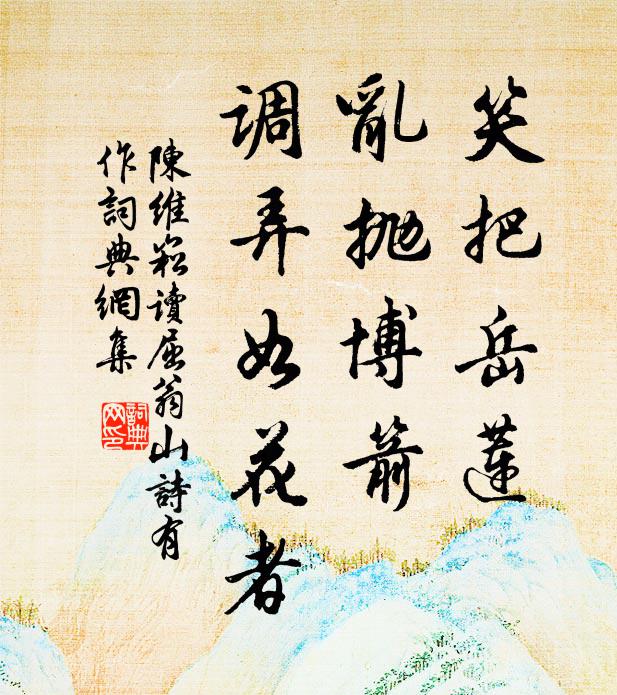 笑把岳蓮
亂抛博箭
調弄如花者
陳維崧讀屈翁山詩有
作詞典網集
詞典
网印